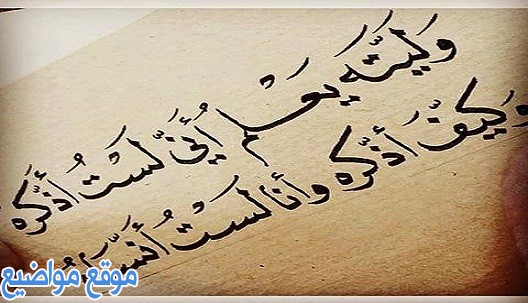 وَليتَه يَعْلم أنّي لَسْت أذكّره
وكيفَّ أذكّره وأنا لَسْت
موقع مواضيع